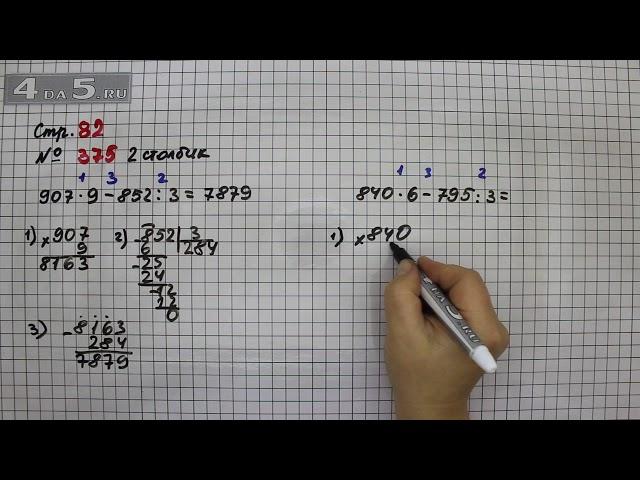 4DA5.RU
Стр. 82
№ 375 2 столбик
1 3 2
907 · 9 - 852 : 3 = 7879
1) × 907
9
8163
2) - 852 3
6 284
- 25
24
- 12
12
0
3) - 8163
284
7879
1 3 2
840 · 6 - 795 : 3 =
1) × 840